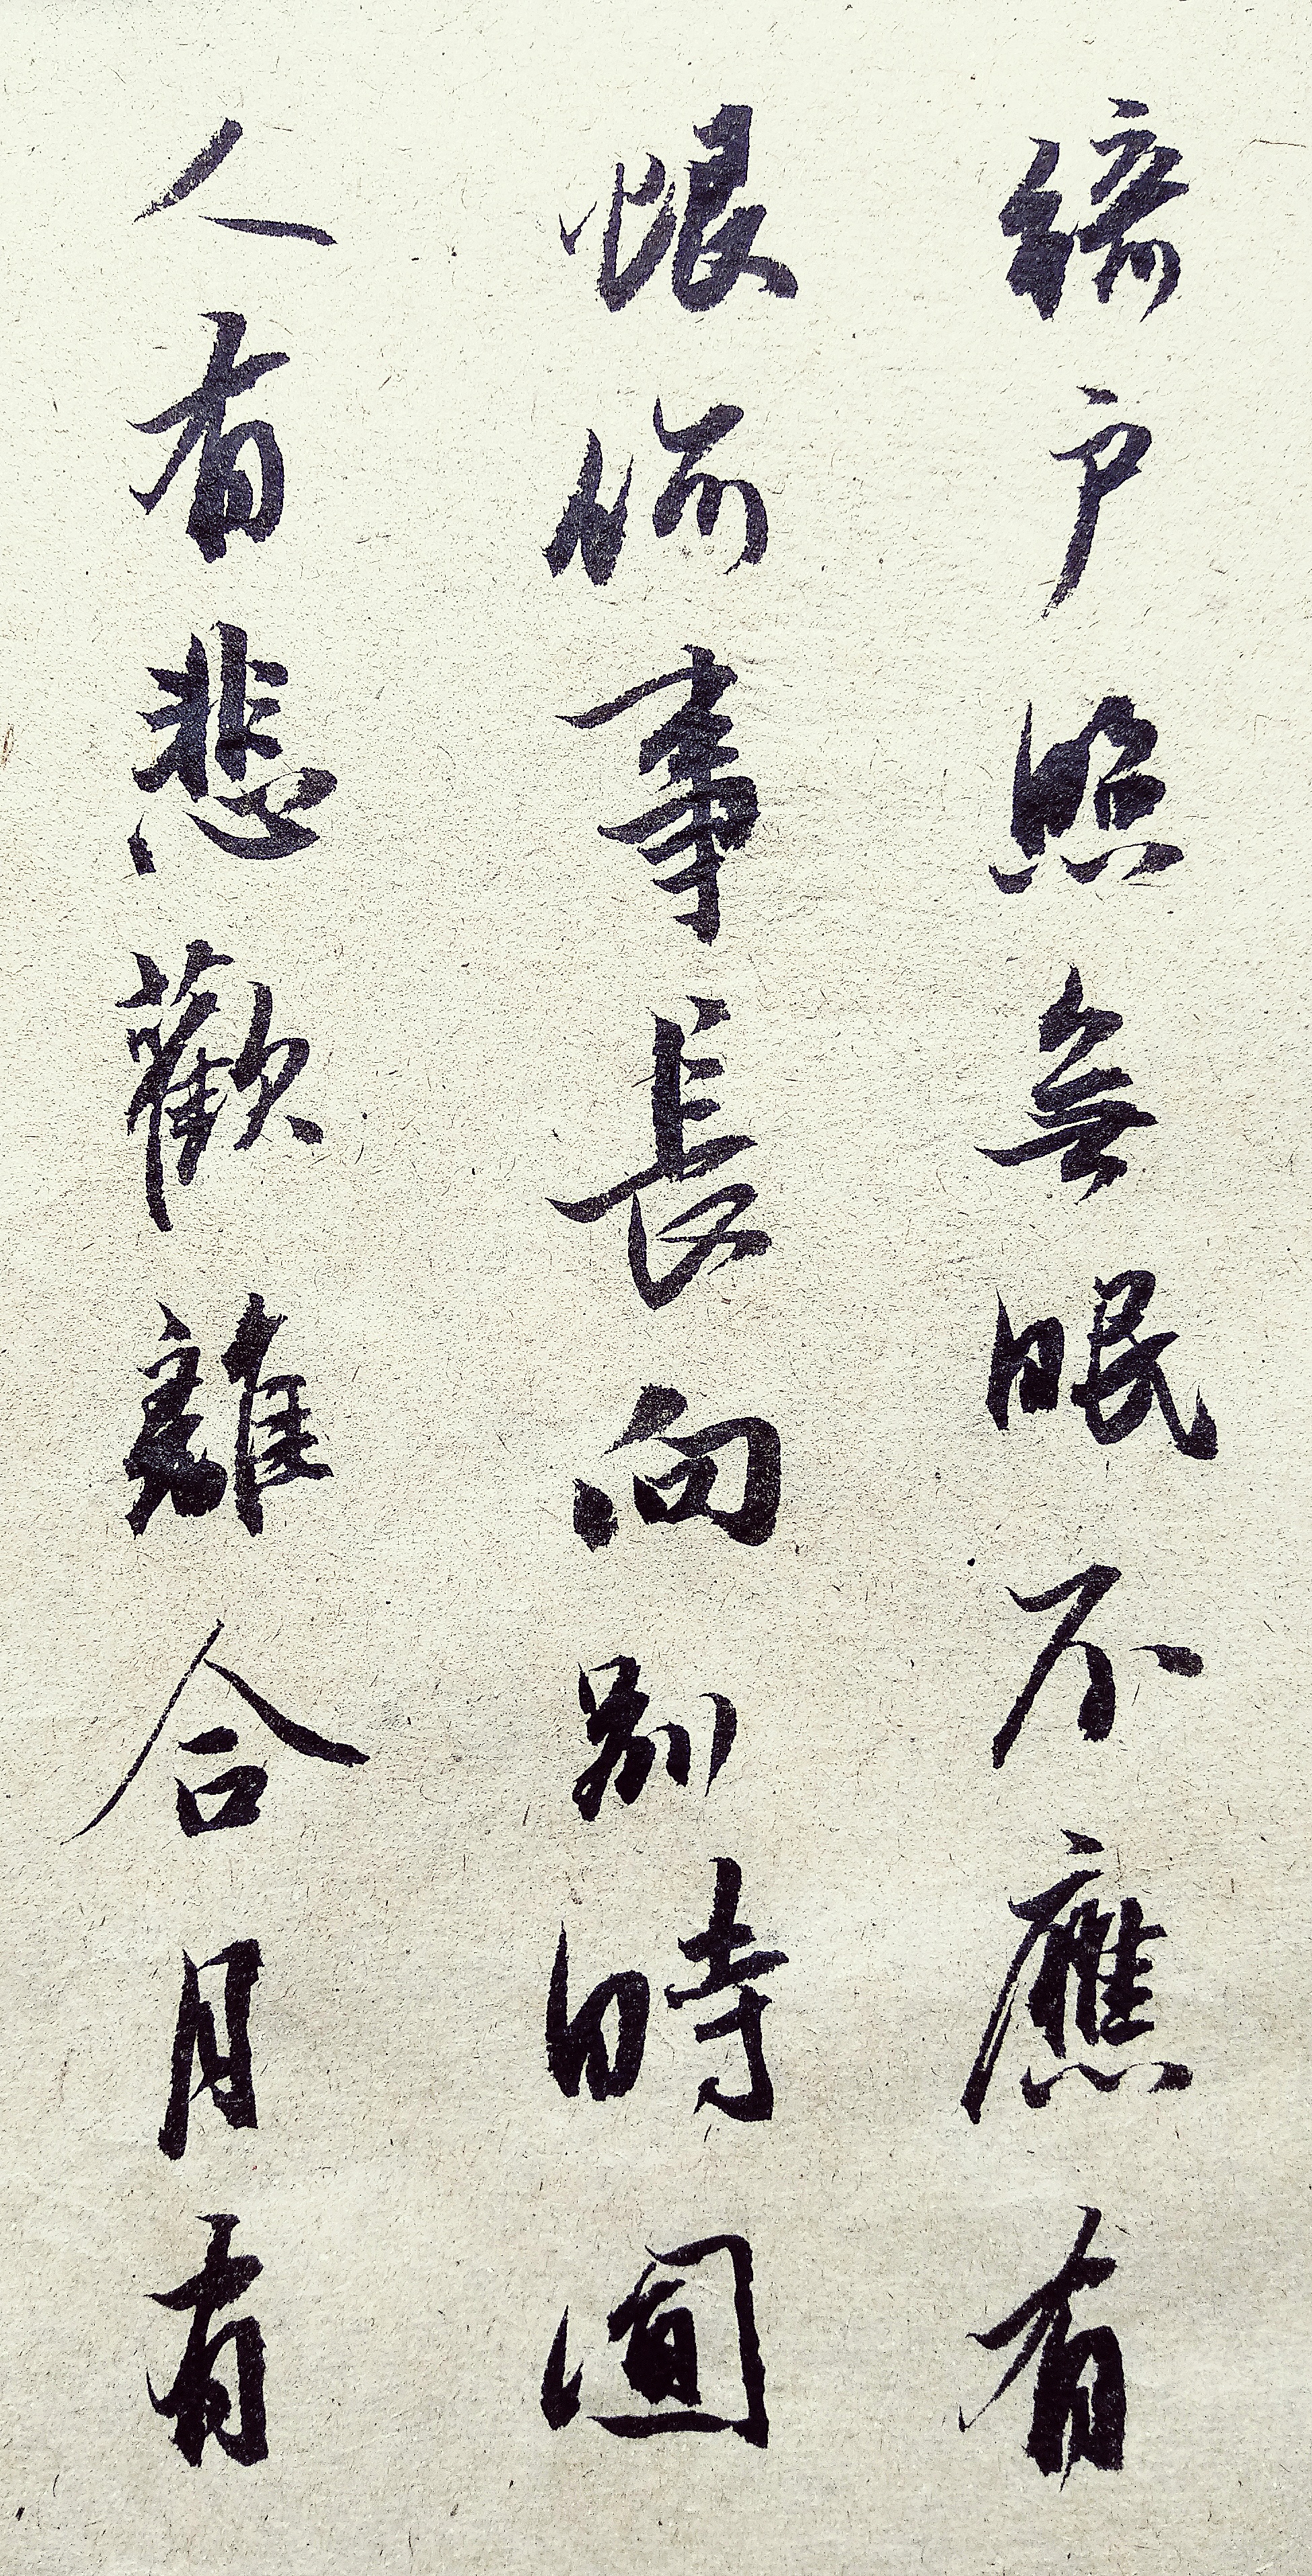 綺户照無眠不應有
恨何事長向別時圎
人有悲歡離合月有